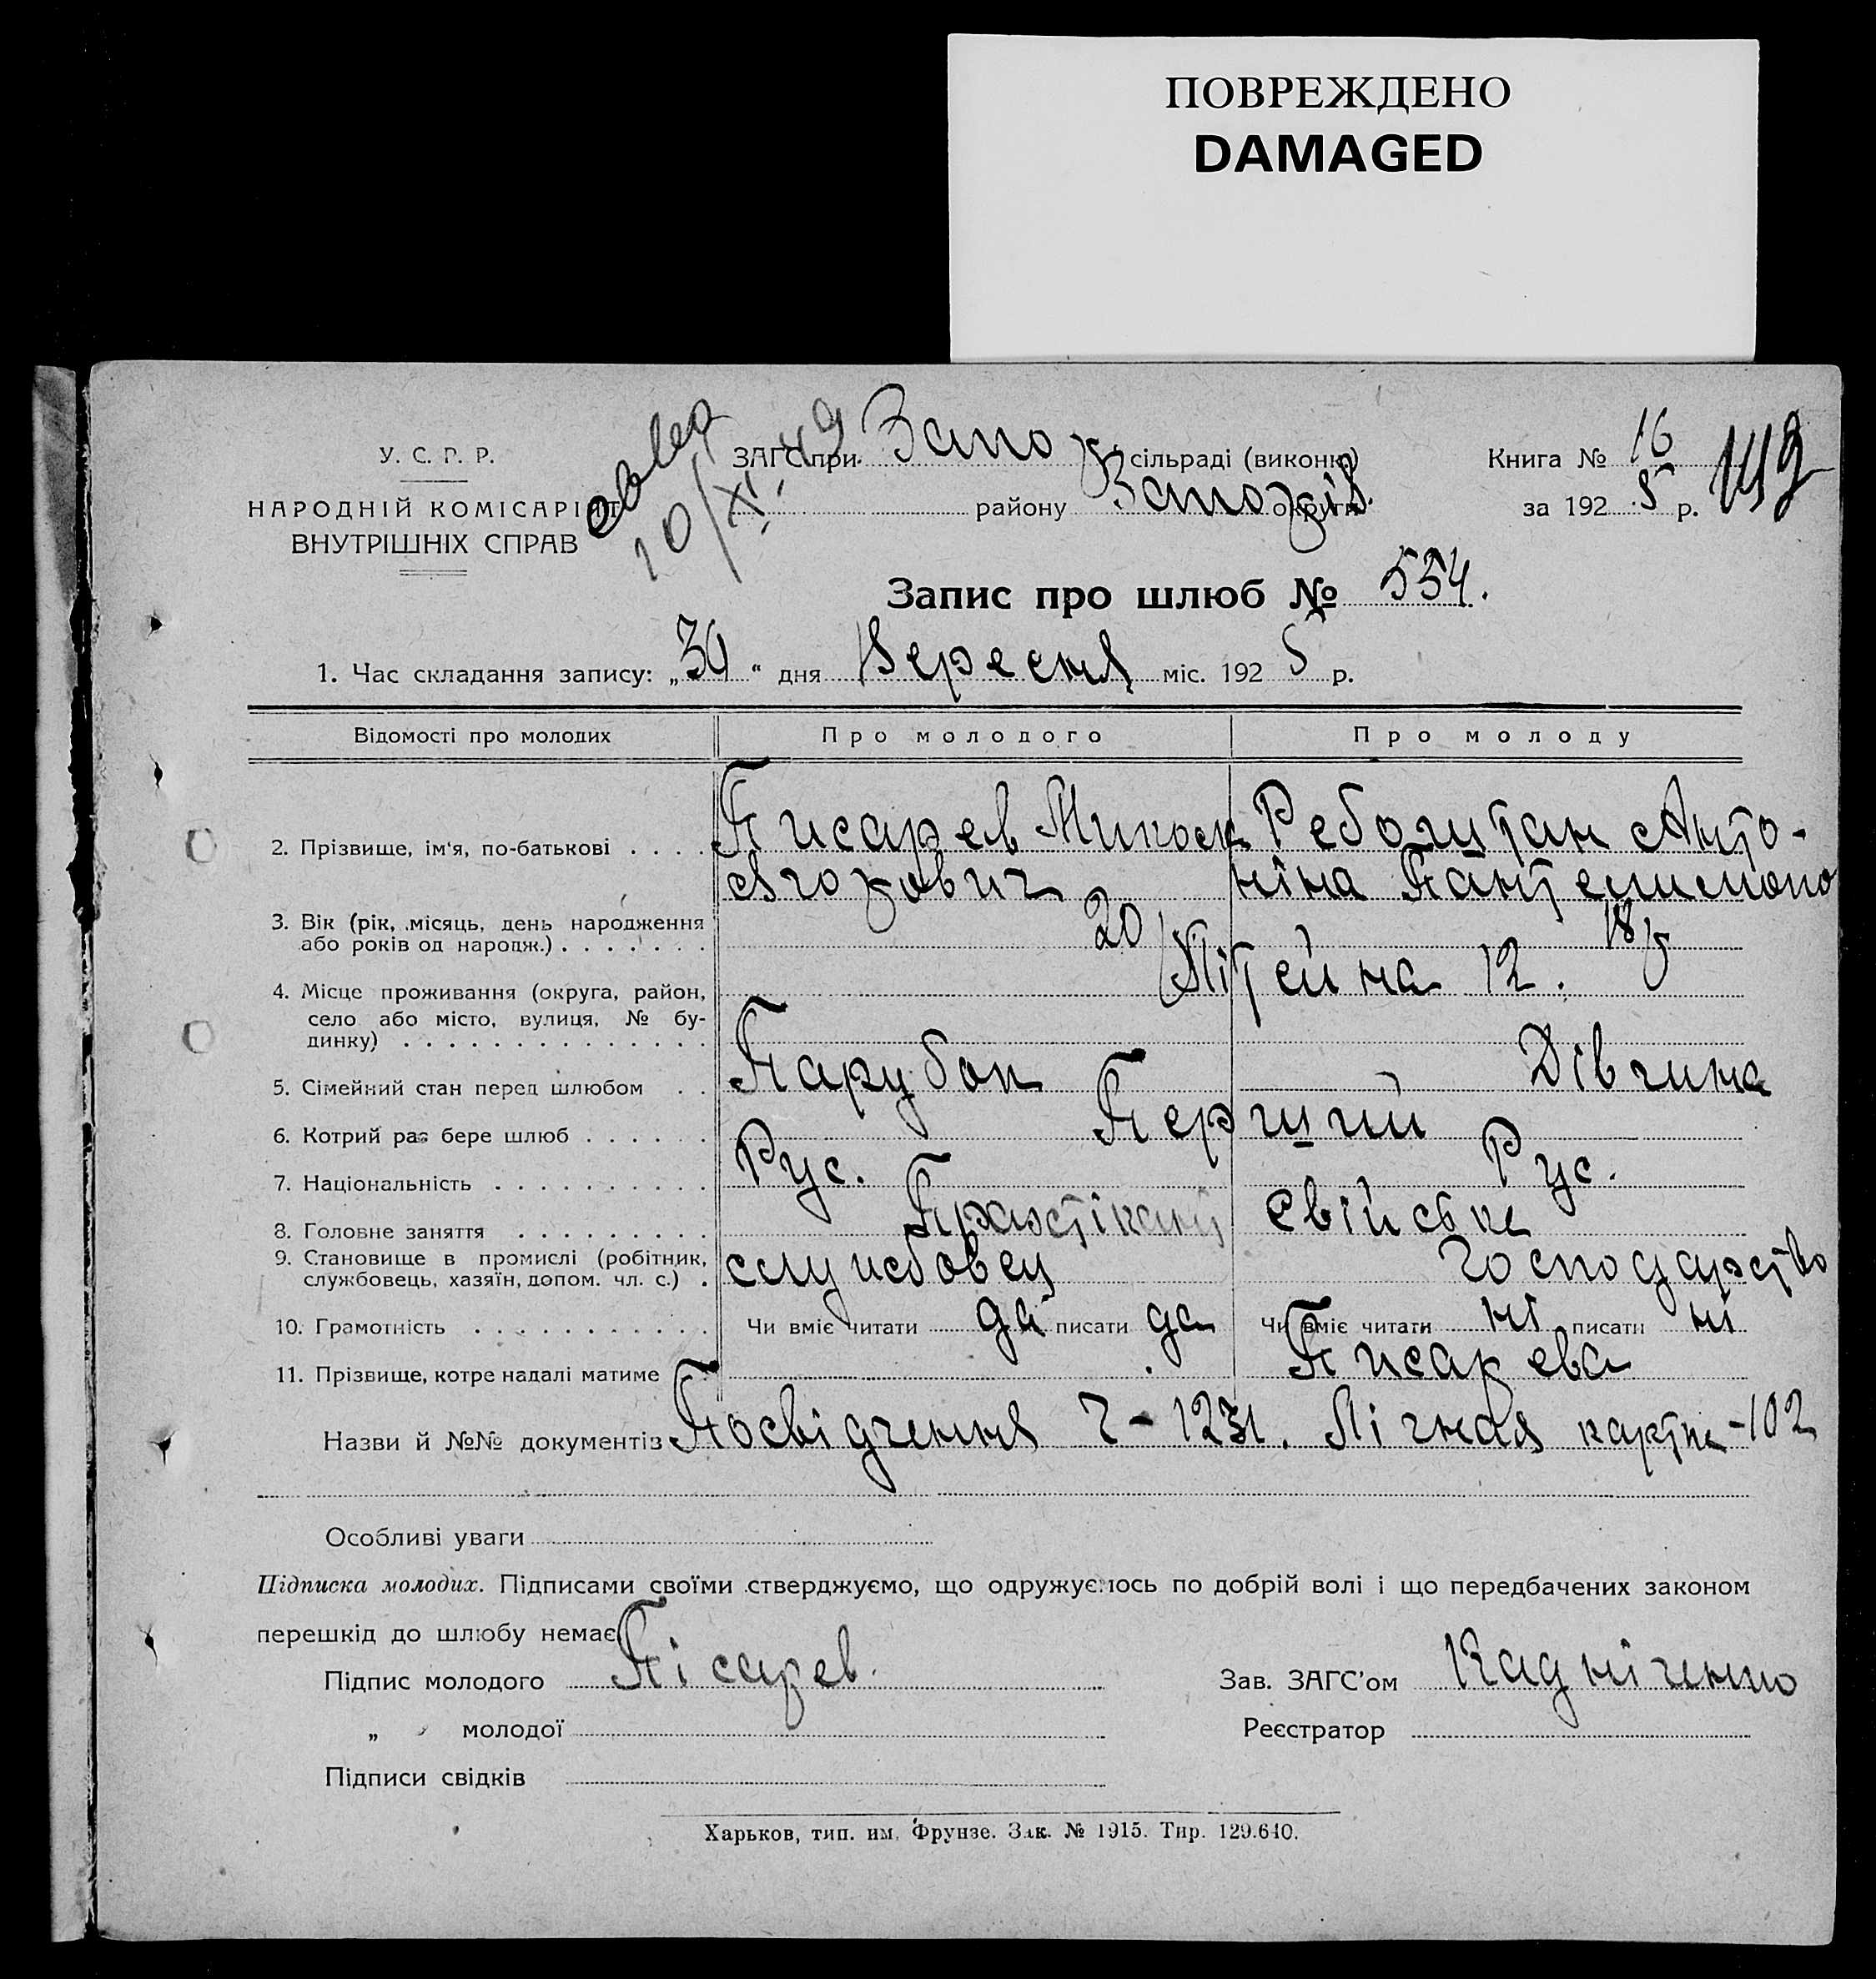 ПОВРЕЖДЕНО
DAMAGED
У. С. Р. Р.
НАРОДНІЙ КОМІСАРІЯТ
ВНУТРІШНІХ СПРАВ
10/XI.
ЗАГС при Запо сільраді (виконк)
району Запоріз округи
Книга № 16
за 192 5 р.
Запис про шлюб № 554.
1. Час складання запису: „30" дня Вересня міс. 192 5 р.
Відомості про молодих Про молодого Про молоду
2. Прізвище, ім'я, по-батькові . . . . Писарев Микола Ребоштан Анто-
ніна Пантелимоно
3. Вік (рік, місяць, день народження
або років од народж.) . . . . . . . 20 18
4. Місце проживання (округа, район, Літейна 12.
село або місто, вулиця, № бу-
динку) . . . . . . . . . . . . . .
5. Сімейний стан перед шлюбом . . Парубок Дівчина
6. Котрий раз бере шлюб . . . . . . Перший
7. Національність . . . . . . . . . . Рус. Рус.
8. Головне заняття . . . . . . . . . Практікант Свійське
9. Становище в промислі (робітник, службовец господарство
службовець, хазяїн, допом. чл. с.) .
10. Грамотність . . . . . . . . . . . Чи вміє читати да писати да Чи вміє читати ні писати ні
11. Прізвище, котре надалі матиме Писарева
Назви й №№ документів Посвідчення Ч-1231. Лічная картка-102
Особливі уваги
Підписка молодих. Підписами своїми стверджуємо, що одружуємось по добрій волі і що передбачених законом
перешкід до шлюбу немає
Підпис молодого Пісарев. Зав. ЗАГС'ом Кадніченко
„ молодої Реєстратор
Підписи свідків
Харьков, тип. им. Фрунзе. Зак. № 1915. Тир. 129.640.